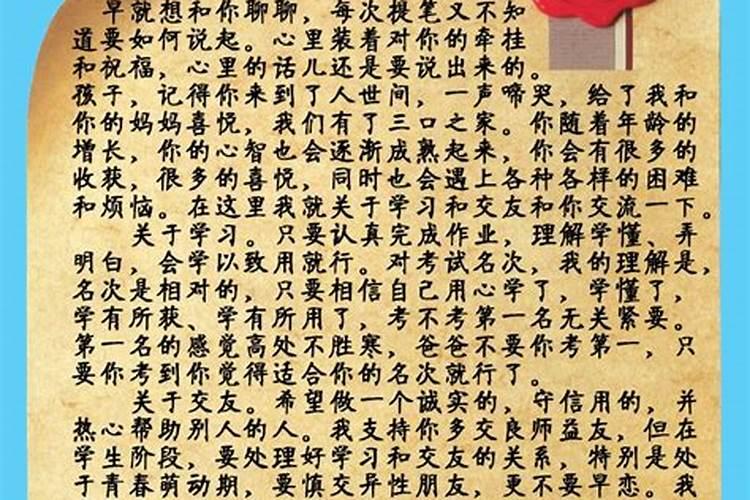 早就想和你聊聊，每次提笔又不知
道要如何说起。心里装着对你的牵挂
和祝福，心里的话儿还是要说出来的。
孩子，记得你来到了人世间，一声啼哭，给了我和
你的妈妈喜悦，我们有了三口之家。你随着年龄的
增长，你的心智也会逐渐成熟起来，你会有很多的
收获，很多的喜悦，同时也会遇上各种各样的困难
和烦恼。在这里我就关于学习和交友和你交流一下。
关于学习。只要认真完成作业，理解学懂、弄
明白，会学以致用就行。对考试名次，我的理解是，
名次是相对的，只要相信自己用心学了，学懂了，
学有所获、学有所用了，考不考第一名无关紧要。
第一名的感觉高处不胜寒，爸爸不要你考第一，只
要你考到你觉得适合你的名次就行了。
关于交友。希望做一个诚实的，守信用的，并
热心帮助别人的人。我支持你多交良师益友，但在
学生阶段，要处理好学习和交友的关系，特别是处
于青春萌动期，要慎交异性朋友，更不要早恋。我